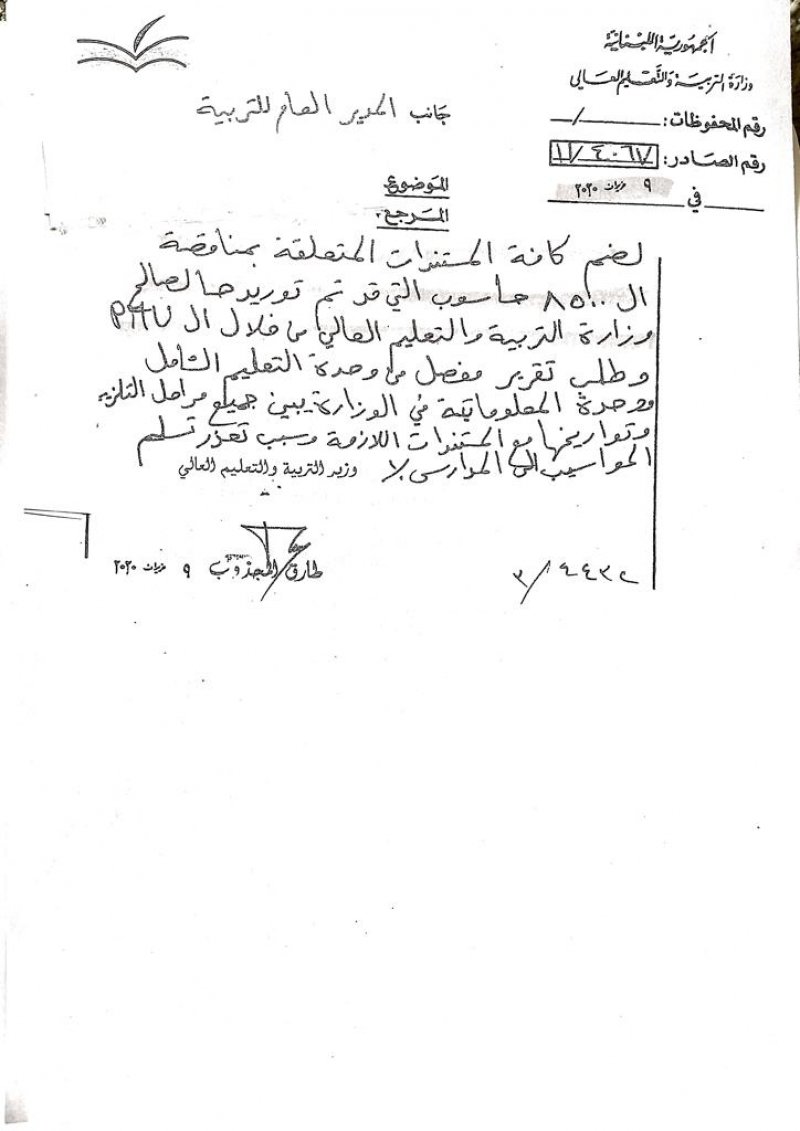 الجمهورية اللبنانية
وزارة التربية والتعليم العالي
رقم المحفوظات: /
رقم الصادر: ١١/٤٠٦٧
في ٩ حزيران ٢٠٢٠
جانب المدير العام للتربية
الموضوع:
المرجع:
لضم كافة المستندات المتعلقة بمناقصة
ال ٨٥٠٠ حاسوب التي قد تم توريدها لصالح
وزارة التربية والتعليم العالي من خلال ال PMU
وطلب تقرير مفصل من وحدة التعليم الشامل
ووحدة المعلوماتية في الوزارة يبين جميع مراحل التلزيم
وتواريخها مع المستندات اللازمة وسبب تعذر تسليم
الحواسيب الى المدارس
وزير التربية والتعليم العالي
طارق المجذوب ٩ حزيران ٢٠٢٠
٣/٤٤٣٢